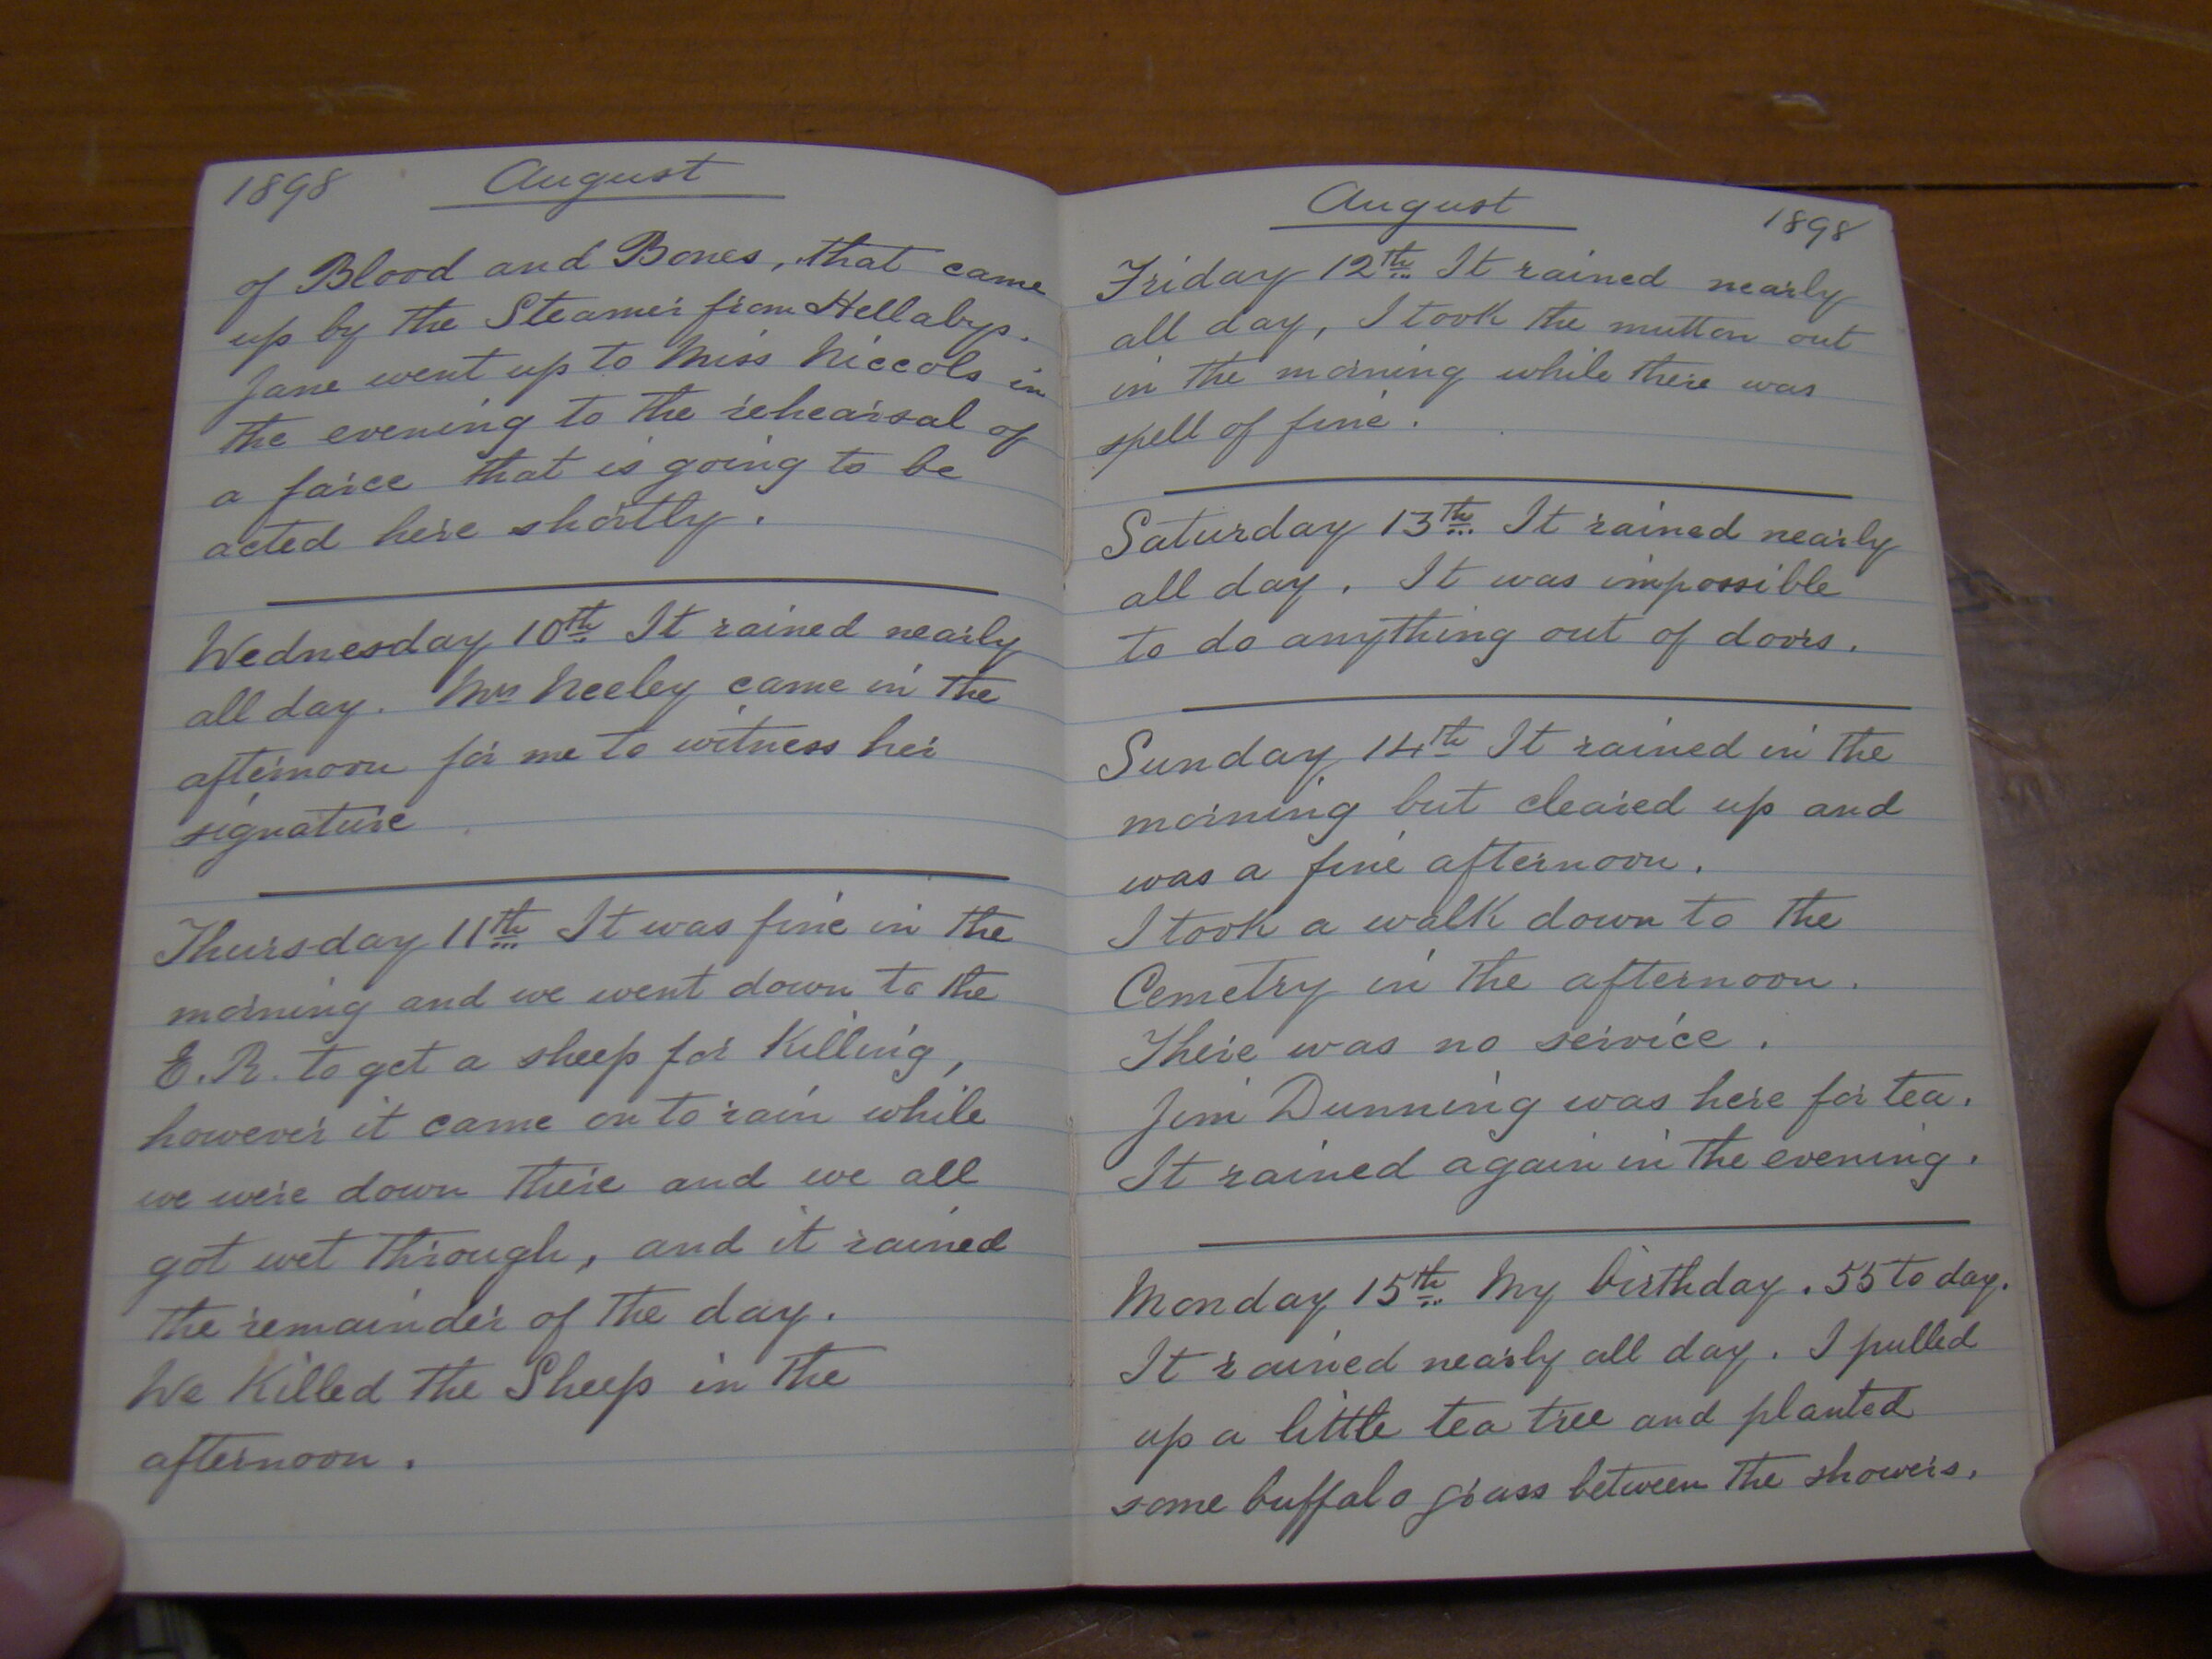 1898 August
of Blood and Bones, that came
up by the Steamer from Hellabys.
Jane went up to Miss Niccols in
the evening to the rehearsal of
a farce that is going to be
acted here shortly.
Wednesday 10th It rained nearly
all day. Mrs Neeley came in the
afternoon for me to witness her
signature
Thursday 11th It was fine in the
morning and we went down to the
E.R. to get a sheep for Killing,
however it came on to rain while
we were down there and we all
got wet through, and it rained
the remainder of the day.
We Killed the Sheep in the
afternoon.
August 1898
Friday 12th It rained nearly
all day, I took the mutton out
in the morning while there was
spell of fine.
Saturday 13th It rained nearly
all day. It was impossible
to do anything out of doors.
Sunday 14th It rained in the
morning but cleared up and
was a fine afternoon.
I took a walk down to the
Cemetry in the afternoon.
There was no service.
Jim Dunning was here for tea.
It rained again in the evening.
Monday 15th My birthday. 55 to day.
It rained nearly all day. I pulled
up a little tea tree and planted
some buffalo grass between the showers.